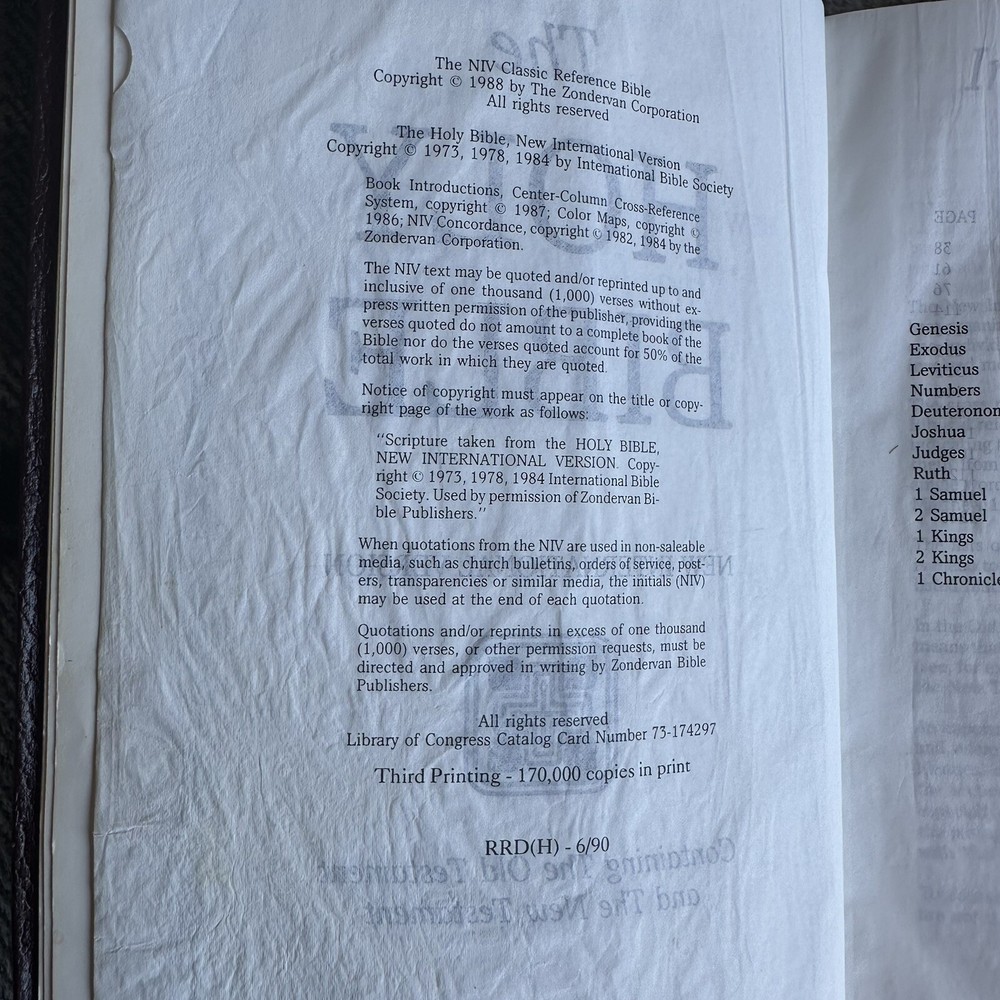 The NIV Classic Reference Bible
Copyright © 1988 by The Zondervan Corporation
All rights reserved
The Holy Bible, New International Version
Copyright © 1973, 1978, 1984 by International Bible Society
Book Introductions, Center-Column Cross-Reference
System, copyright © 1987; Color Maps, copyright ©
1986; NIV Concordance, copyright © 1982, 1984 by the
Zondervan Corporation.
The NIV text may be quoted and/or reprinted up to and
inclusive of one thousand (1,000) verses without ex-
press written permission of the publisher, providing the
verses quoted do not amount to a complete book of the
Bible nor do the verses quoted account for 50% of the
total work in which they are quoted.
Notice of copyright must appear on the title or copy-
right page of the work as follows:
"Scripture taken from the HOLY BIBLE,
NEW INTERNATIONAL VERSION. Copy-
right © 1973, 1978, 1984 International Bible
Society. Used by permission of Zondervan Bi-
ble Publishers."
When quotations from the NIV are used in non-saleable
media, such as church bulletins, orders of service, post-
ers, transparencies or similar media, the initials (NIV)
may be used at the end of each quotation.
Quotations and/or reprints in excess of one thousand
(1,000) verses, or other permission requests, must be
directed and approved in writing by Zondervan Bible
Publishers.
All rights reserved
Library of Congress Catalog Card Number 73-174297
Third Printing - 170,000 copies in print
RRD(H) - 6/90
The
HOLY
BIBLE
NEW INTERNATIONAL VERSION
Containing The Old Testament
and The New Testament
PAGE
38
61
76
Genesis
Exodus
Leviticus
Numbers
Deuteronon
Joshua
Judges
Ruth
1 Samuel
2 Samuel
1 Kings
2 Kings
1 Chronicle